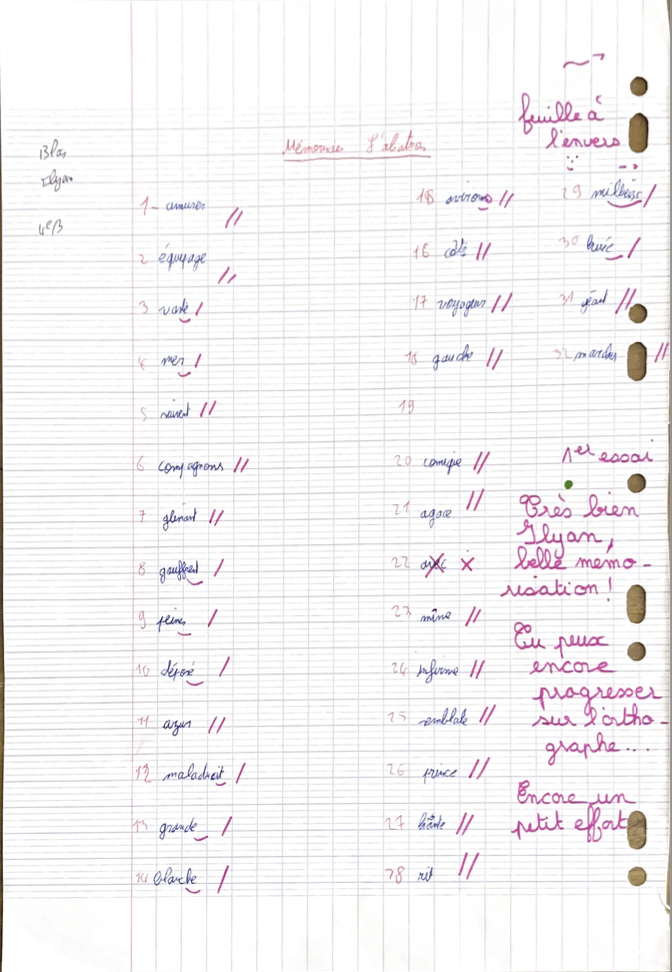 feuille à
l'envers
Blas
Ilyan
4eB
Mémoriser l'albatros
1- amuser
2 équipage
3 vaste
4 mer
5 suivent
6 compagnons
7 glissant
8 gouffre
9 peine
10 déposé
11 azur
12 maladroit
13 grande
14 blanche
15 avirons
16 côté
17 voyageur
18 gauche
19
20 comique
21 agace
22
23 mime
24 infirme
25 semblable
26 prince
27 hante
28 rit
29 milieu
30 huée
31 géant
32 marcher
1er essai
Très bien
Ilyan,
belle mémo-
risation !
Tu peux
encore
progresser
sur l'ortho-
graphe...
Encore un
petit effort